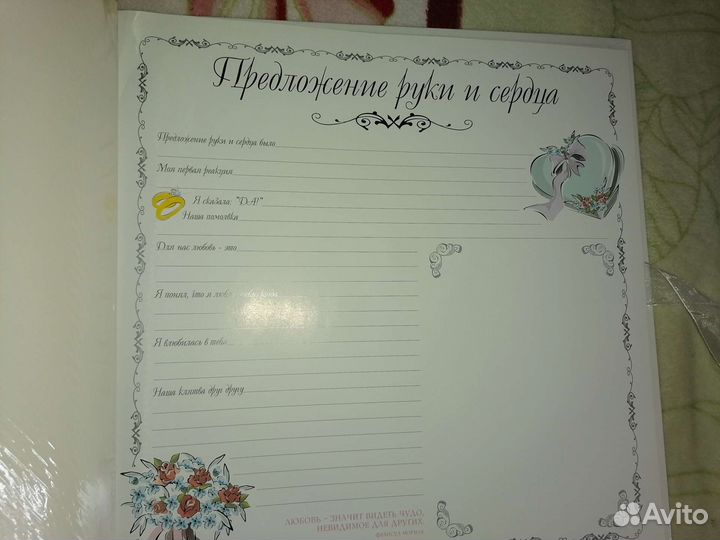 Предложение руки и сердца
Предложение руки и сердца было
Моя первая реакция
Я сказала: "ДА!"
Наша помолвка
Для нас любовь - это
Я понял, что я люблю
Я влюбилась в тебя
Наша клятва друг другу
ЛЮБОВЬ - ЗНАЧИТ ВИДЕТЬ ЧУДО,
НЕВИДИМОЕ ДЛЯ ДРУГИХ.
ФРАНСУА МОРИАК
Avito